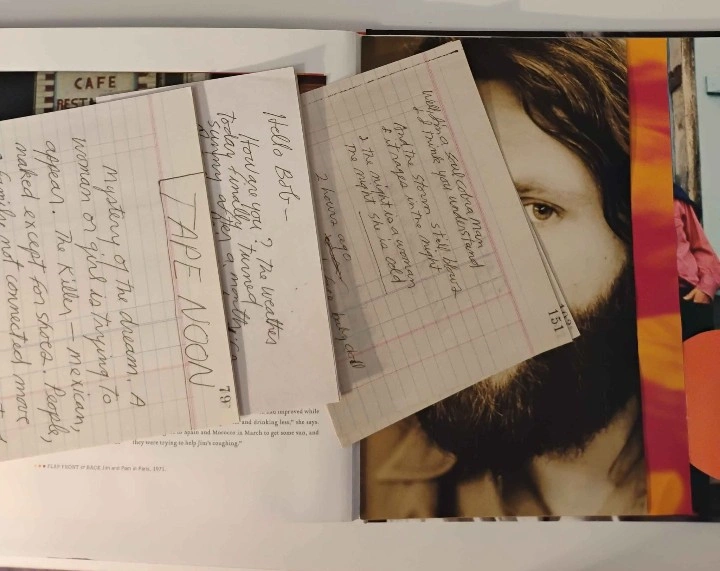 CAFE
TAPE NOON
mystery of the dream. A
woman or girl is trying to
appear. The Killer — mexican,
naked except for shoes. People,
a family not connected move
79
Hello Bob—
How are you? The weather
today finally turned
sunny after a month
Well, I'm a soul cobra man
& I think you understand
And the storm still blows
& it rages in the night
& the night is a woman
The night she is old
2 hours ago
baby chill
151
improved while
and drinking less," she says.
Spain and Morocco in March to get some sun, and
they were trying to help Jim's coughing."
FLAP FRONT & BACK Jim and Pam in Paris, 1971.